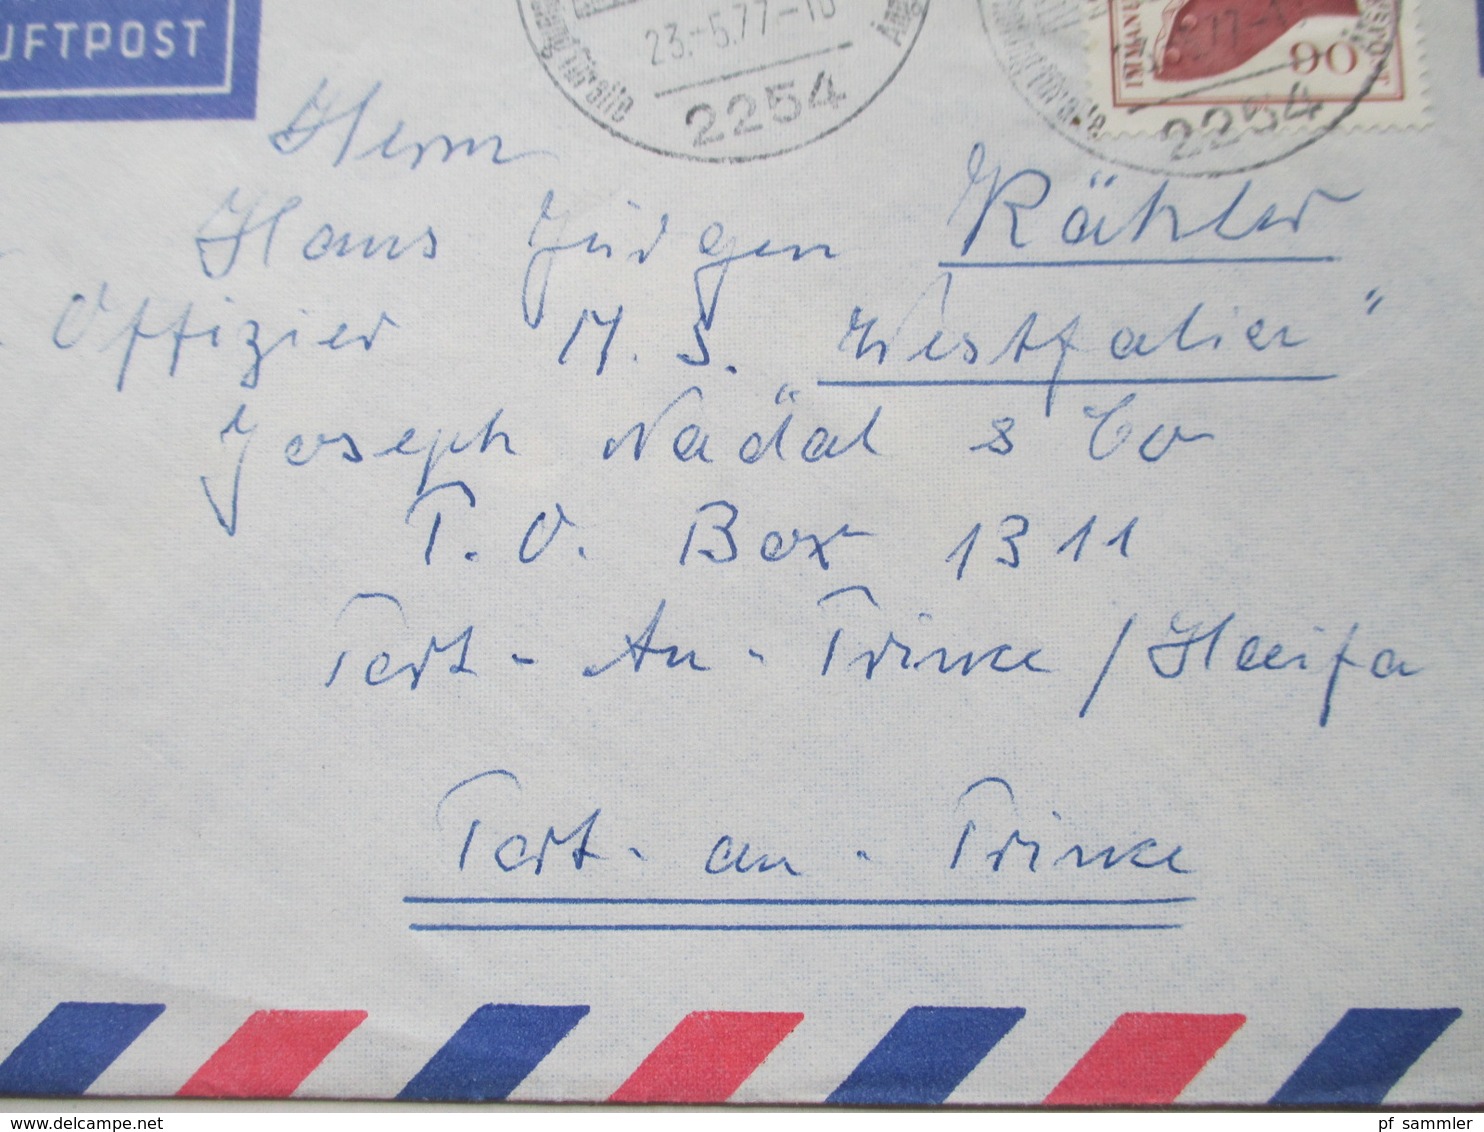 LUFTPOST
23.-5.77-18
2254
2254
IMMANUEL
90
Herrn
Hans Jürgen Kähler
Offizier M.S. Westfalien"
Joseph Nadäl & Co
P.O. Box 1311
Port-Au-Prince / Haifa
Port-au-Prince
pf_sammler